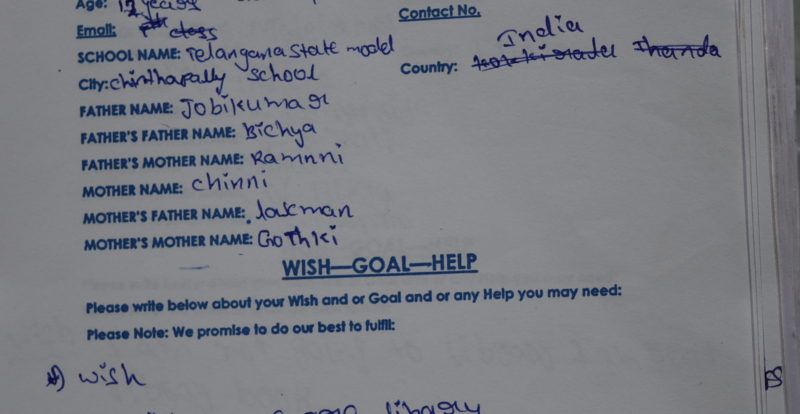 Age: 12 years
Contact No.
Email: 7th class
India
SCHOOL NAME: Telangana state model
Country: Thanda
City: chinthapally school
FATHER NAME: Jobikumar
FATHER'S FATHER NAME: Bichya
FATHER'S MOTHER NAME: Ramnni
MOTHER NAME: chinni
MOTHER'S FATHER NAME: laxman
MOTHER'S MOTHER NAME: Gothki
WISH—GOAL—HELP
Please write below about your Wish and or Goal and or any Help you may need:
Please Note: We promise to do our best to fulfil:
wish
library